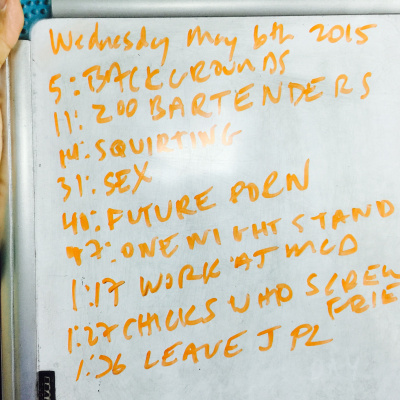 Wednesday May 6th 2015
5: BACKGROUNDS
11: 200 BARTENDERS
14: SQUIRTING
31: SEX
40: FUTURE PORN
47: ONE NIGHT STAND
1:17 WORK AT MCD
1:27 CHICKS WHO SCREW
FRIE
1:36 LEAVE J PL